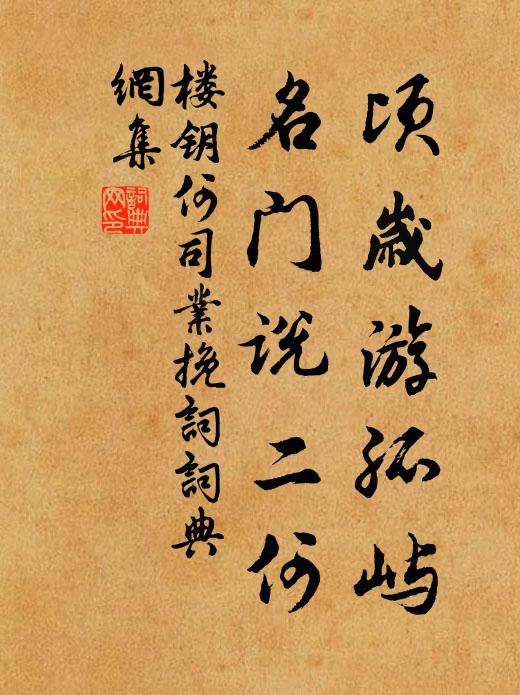 顷岁游孤屿
名门说二何
楼钥何司业挽詞詞典
網集
詞典
网印